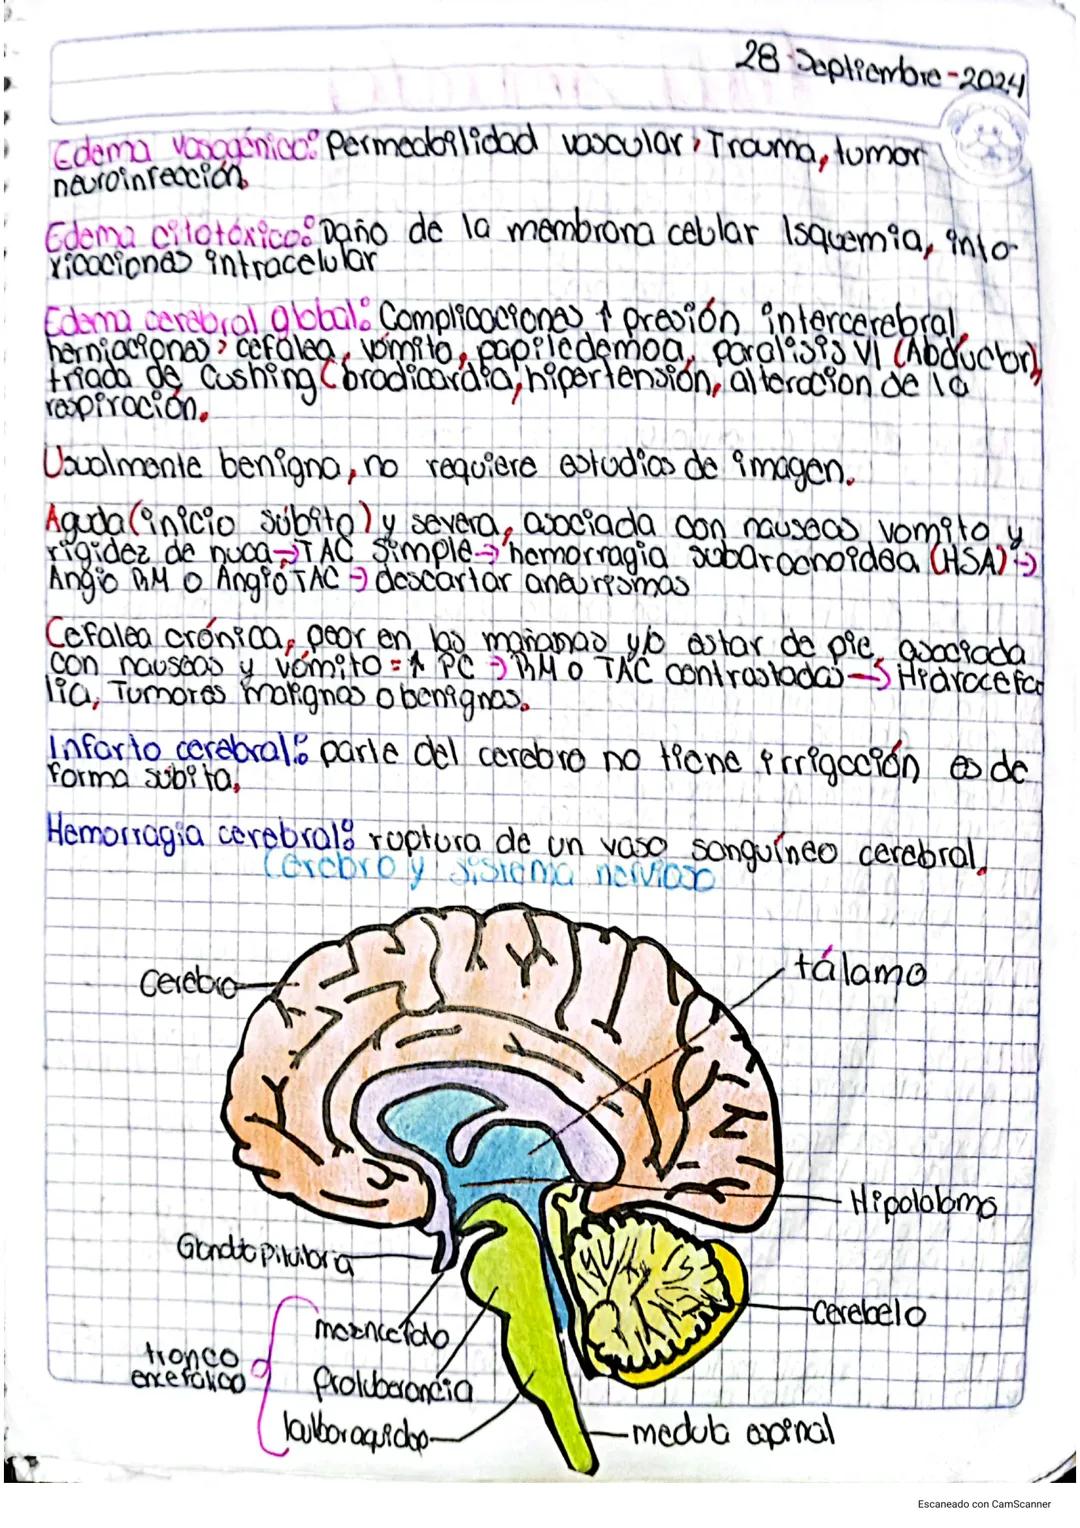 28-Septiembre-2024
Edema vasogénico: Permeabilidad vascular, Trauma, tumor
neuroinfección.
Edema citotóxico: Daño de la membrana celular Isquemia, into-
xicaciones intracelular
Edema cerebral global: Complicaciones ↑ presión intercerebral,
herniaciones, cefalea, vómito, papiledemoa, paralisis VI (Abductor),
triada de Cushing (bradicardia, hipertensión, alteracion de la
respiración.
Usualmente benigna, no requiere estudios de imagen.
Aguda (inicio súbito) y severa, asociada con nauseas vomito y
rigidez de nuca → TAC simple → hemorragia subaracnoidea (HSA) →
Angio RM o Angio TAC → descartar aneurismas
Cefalea crónica, peor en las mañanas y/o estar de pie, asociada
con nauseas y vómito = ↑ PC → RM o TAC contrastadas → Hidrocefa
lia, Tumores malignos o benignos.
Infarto cerebral: parte del cerebro no tiene irrigación es de
forma subita.
Hemorragia cerebral: ruptura de un vaso sanguíneo cerebral.
Cerebro y sistema nervioso
Cerebro
tálamo
Hipotalamo
Glandula pituitaria
Cerebelo
tronco
encefálico
mesencefalo
Protuberancia
bulboraquideo
medula espinal
Escaneado con CamScanner